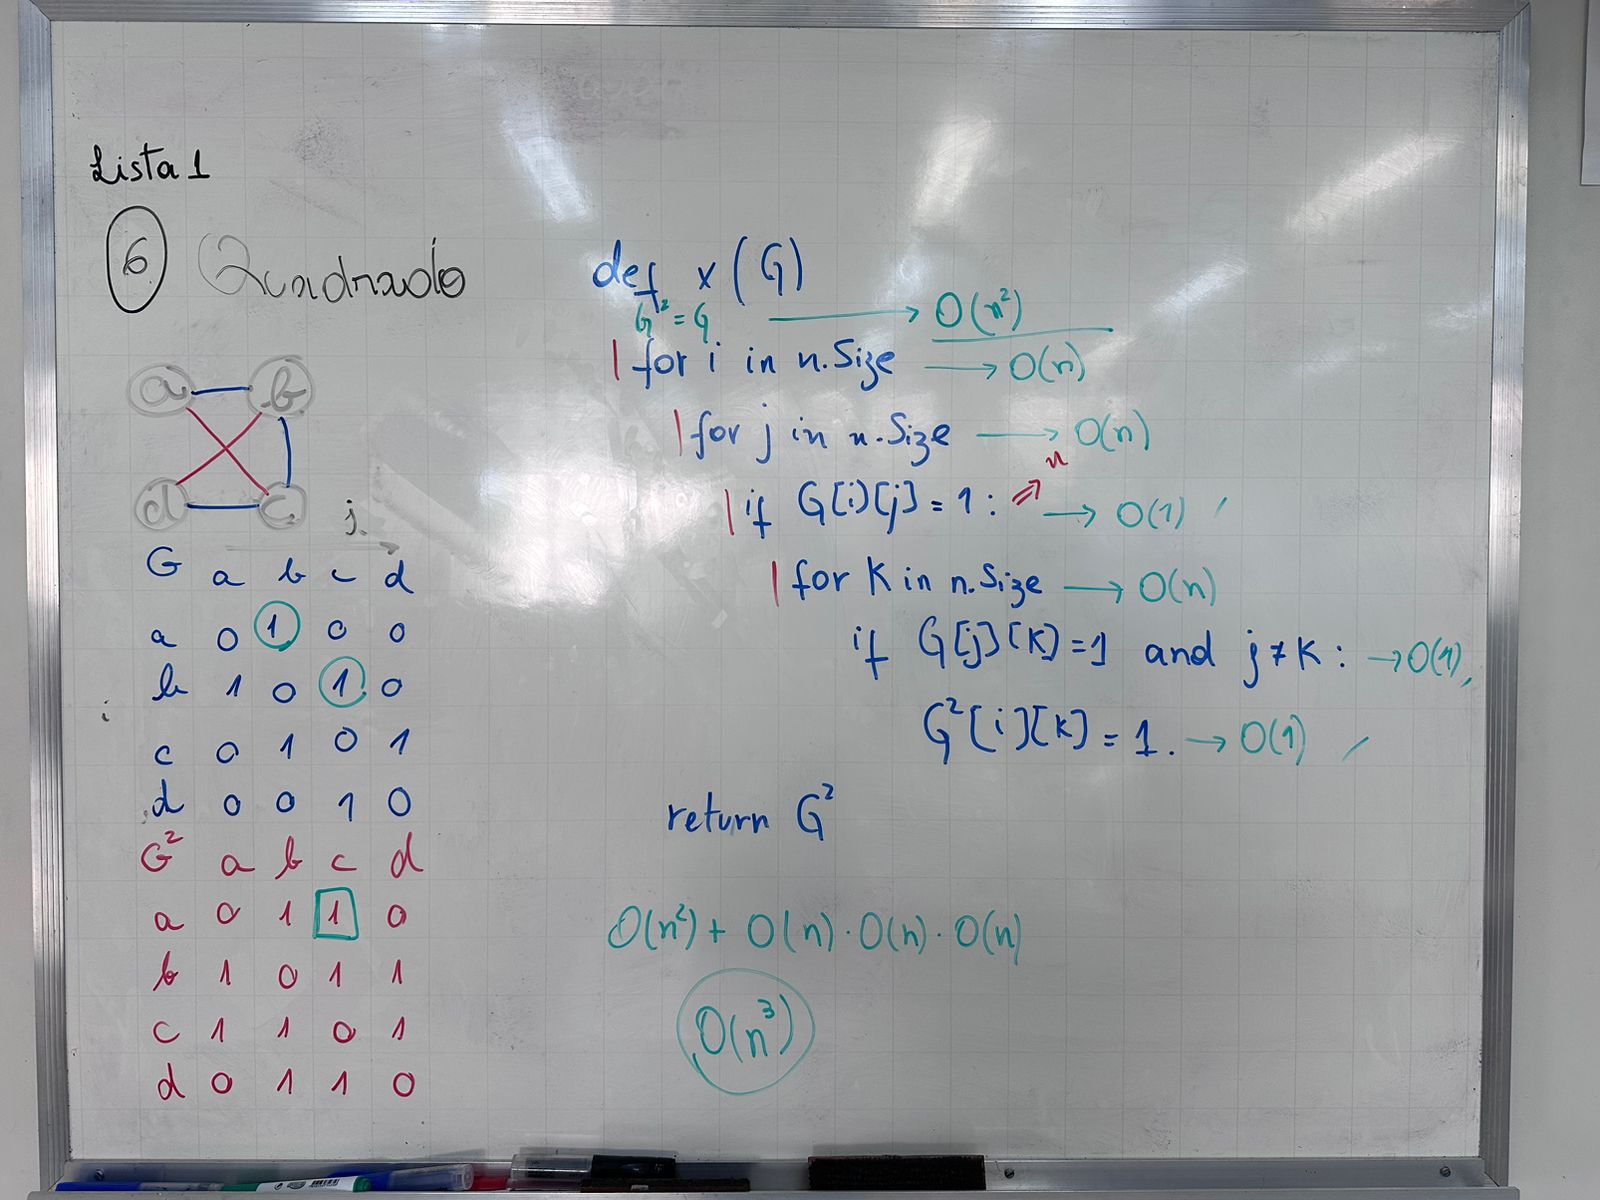 Lista 1
6 Quadrado
a b
d c
j
G a b c d
a 0 1 0 0
b 1 0 1 0
i
c 0 1 0 1
d 0 0 1 0
G² a b c d
a 0 1 1 0
b 1 0 1 1
c 1 1 0 1
d 0 1 1 0
def x (G)
G² = G → O(n²)
for i in n.Size → O(n)
for j in n.Size → O(n)
n
if G[i][j] = 1: ⇗ → O(1)
for K in n.Size → O(n)
if G[j][K] = 1 and j ≠ K: → O(1)
G²[i][K] = 1. → O(1)
return G²
O(n²) + O(n) · O(n) · O(n)
O(n³)